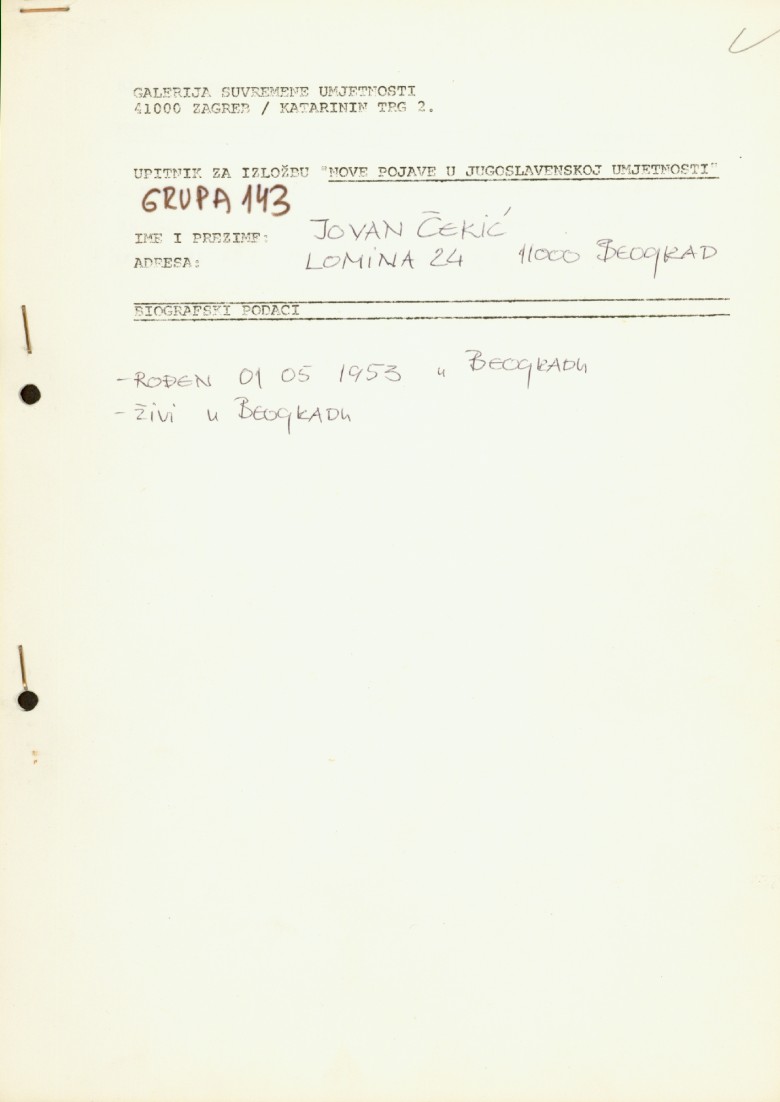 GALERIJA SUVREMENE UMJETNOSTI
41000 ZAGREB / KATARININ TRG 2.
UPITNIK ZA IZLOŽBU "NOVE POJAVE U JUGOSLAVENSKOJ UMJETNOSTI"
GRUPA 143
IME I PREZIME: JOVAN ČEKIĆ
ADRESA: LOMINA 24 11000 BEOGRAD
BIOGRAFSKI PODACI
- ROĐEN 01 05 1953 u BEOGRADu
- ŽIVI u BEOGRADu